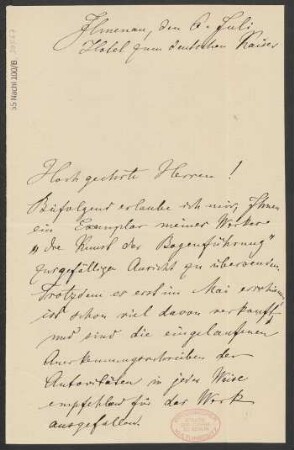 Ilmenau, den 6. Juli
Hotel zum deutschen Kaiser
55 Nachl 100/B
Hoch geehrte Herren!
Beifolgend erlaube ich mir, Ihnen
ein Exemplar meines Werkes
„Die Kunst der Bogenführung"
zur gefälligen Ansicht zu übersenden.
Trotzdem es erst im Mai erschienen,
ist schon viel davon verkauft
und sind die eingelaufenen
Anerkennungsschreiben der
Autoritäten in jeder Weise
empfehlend für das Werk
ausgefallen.